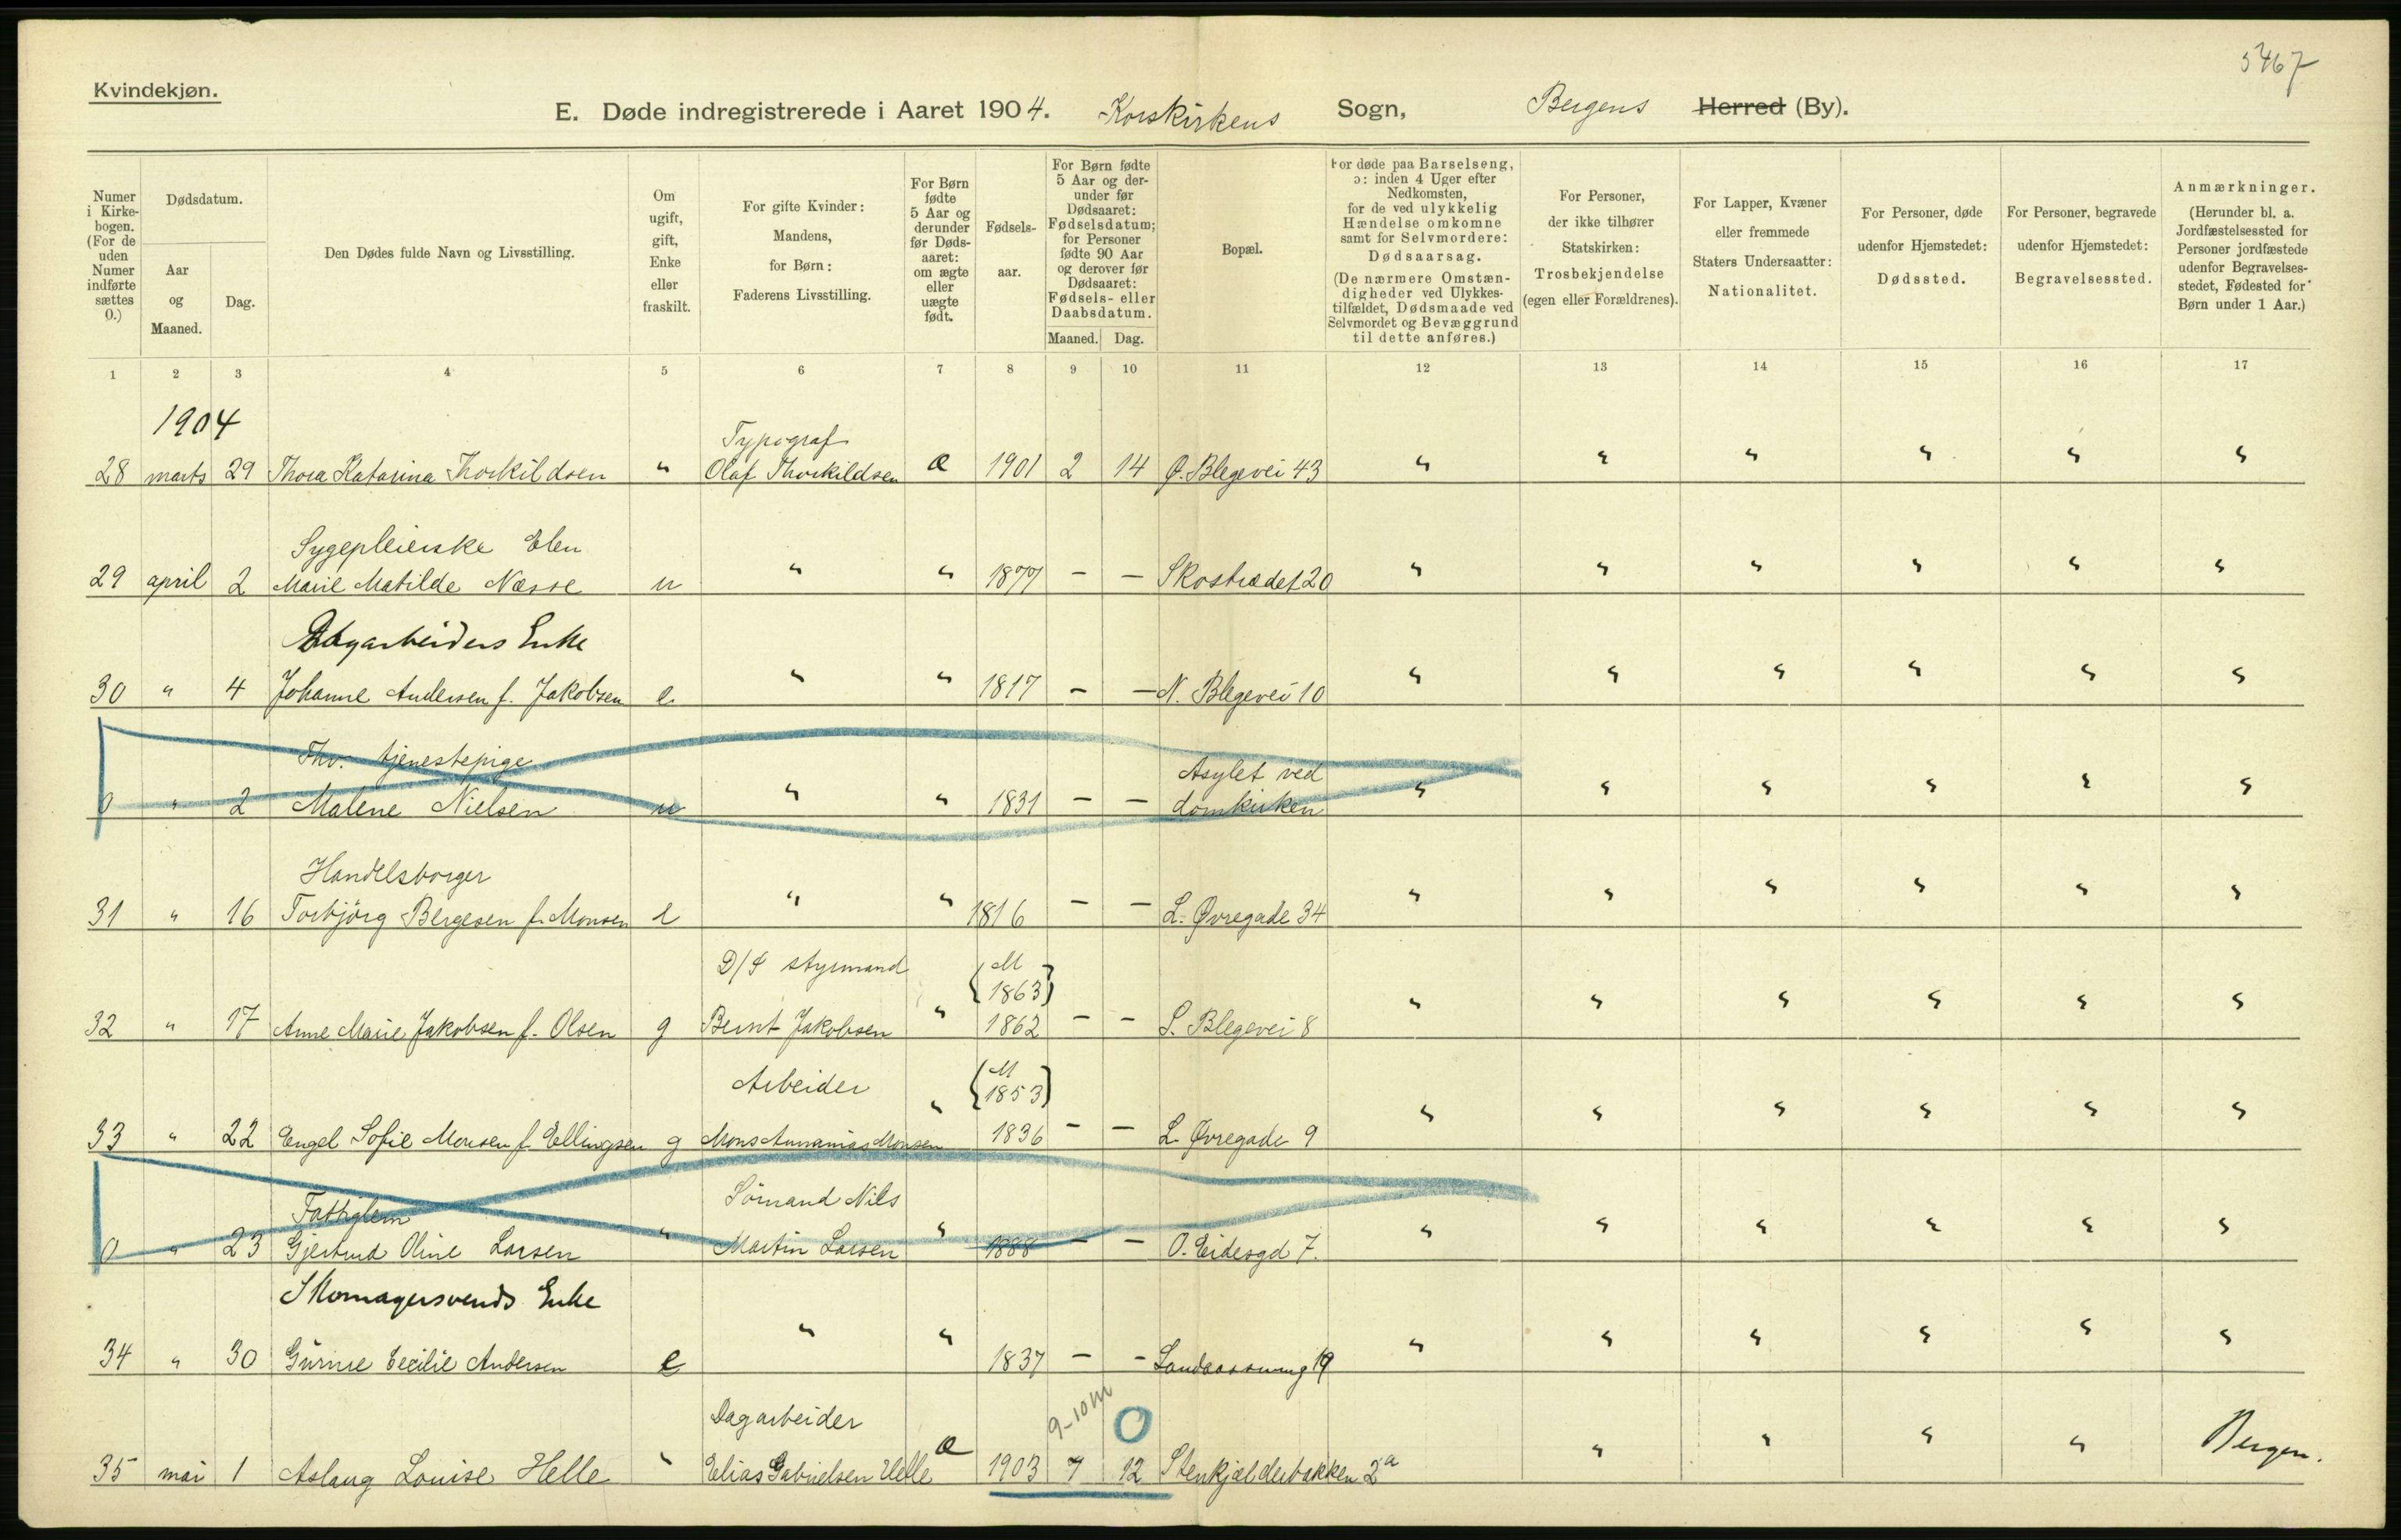 5467
Kvindekjøn.
E. Døde indregistrerede i Aaret 1904. Korskirkens Sogn, Bergens Herred (By).
Numer i Kirkebogen. (For de uden Numer indførte sættes 0.)
Dødsdatum.
Aar og Maaned.
Dag.
Den Dødes fulde Navn og Livsstilling.
Om ugift, gift, Enke eller fraskilt.
For gifte Kvinder: Mandens, for Børn: Faderens Livsstilling.
For Børn fødte 5 Aar og derunder før Dødsaaret: om ægte eller uægte født.
Fødselsaar.
For Børn fødte 5 Aar og derunder før Dødsaaret: Fødselsdatum; for Personer fødte 90 Aar og derover før Dødsaaret: Fødsels- eller Daabsdatum.
Maaned. Dag.
Bopæl.
For døde paa Barselseng, ɔ: inden 4 Uger efter Nedkomsten, for de ved ulykkelig Hændelse omkomne samt for Selvmordere: Dødsaarsag.
(De nærmere Omstændigheder ved Ulykkestilfældet, Dødsmaade ved Selvmordet og Bevæggrund til dette anføres.)
For Personer, der ikke tilhører Statskirken: Trosbekjendelse (egen eller Forældrenes).
For Lapper, Kvæner eller fremmede Staters Undersaatter: Nationalitet.
For Personer, døde udenfor Hjemstedet: Dødssted.
For Personer, begravede udenfor Hjemstedet: Begravelsessted.
Anmærkninger. (Herunder bl. a. Jordfæstelsessted for Personer jordfæstede udenfor Begravelsesstedet, Fødested for Børn under 1 Aar.)
1 2 3 4 5 6 7 8 9 10 11 12 13 14 15 16 17
1904
Typograf
28 marts 29 Thora Katarina Thorkildsen " Olaf Thorkildsen æ 1901 2 14 Ø. Blegevei 43 " " " " " "
Sygepleierske Elen
29 april 2 Marie Matilde Næsse u " " 1877 - - Skostrædet 20 " " " " " "
Dagarbeiders Enke
30 " 4 Johanne Andersen f. Jakobsen e " " 1817 - - N. Blegevei 10 " " " " " "
Fhv. tjenestepige Asylet ved
0 " 2 Malene Nielsen u " " 1831 - - domkirken " " " " " "
Handelsborger
31 " 16 Torbjörg Bergesen f. Monsen e " " 1816 - - L. Øvregade 34 " " " " " "
D/S styrmand {M 1863}
32 " 17 Anne Marie Jakobsen f. Olsen g Bernt Jakobsen " 1862 - - S. Blegevei 8 " " " " " "
Arbeider {M 1853}
33 " 22 Engel Sofie Monsen f. Ellingsen g Mons Annanias Monsen " 1836 - - L. Øvregade 9 " " " " " "
Fattiglem Sömand Nils
0 " 23 Gjertrud Oline Larsen " Martin Larsen " 1888 - - O. Eidesgd 7. " " " " " "
Skomagersvends Enke
34 " 30 Gurine Cecilie Andersen e " " 1837 - - Landaassving 19 " " " " " "
Dagarbeider 9-10 M 0
35 mai 1 Aslaug Louise Helle " Elias Gabrielsen Helle æ 1903 7 12 Stenkjælderbakken 2a " " " " Bergen.